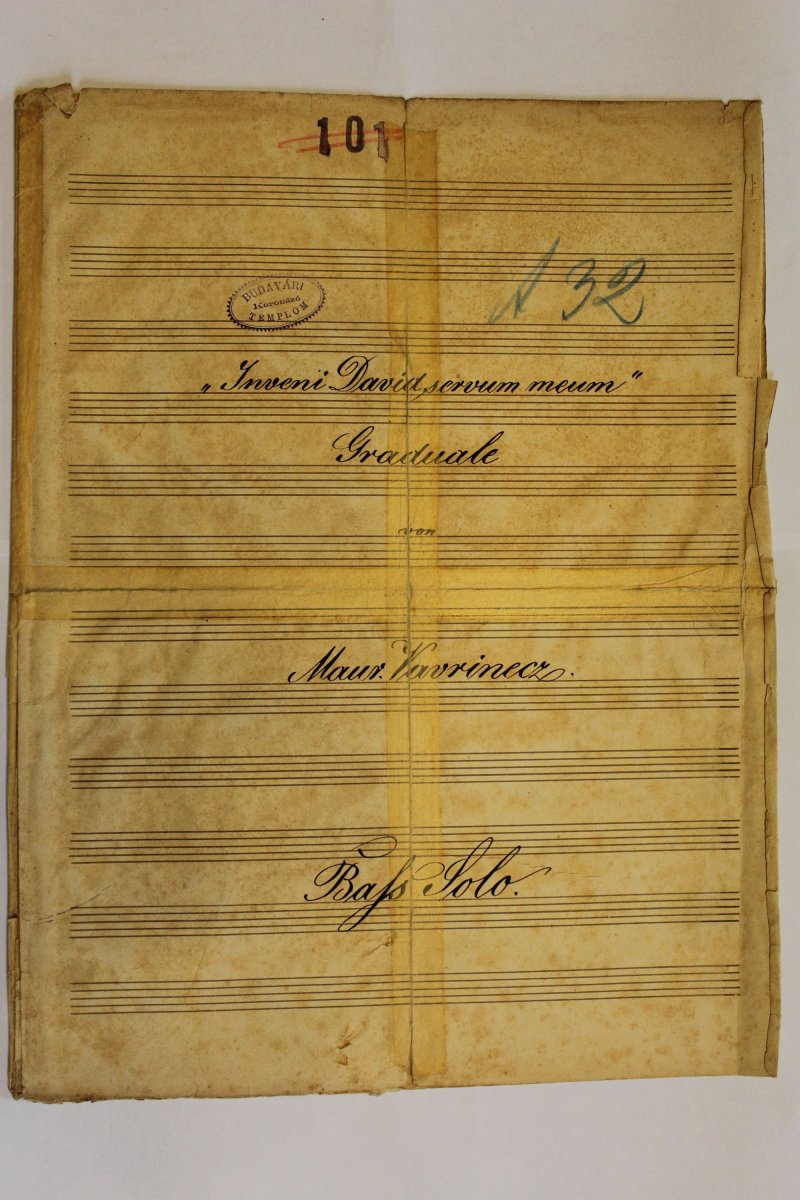 101
A 32
BUDAVÁRI
Koronázó
TEMPLOM
„Inveni David servum meum“
Graduale
von
Maur. Vavrinecz.
Baſs Solo.